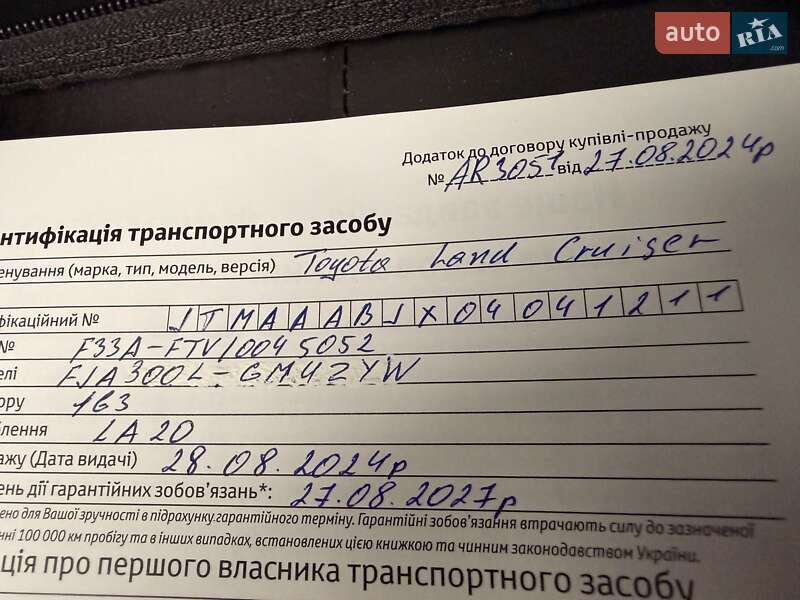 auto RIA.com
Додаток до договору купівлі-продажу
№ AR3051 від 27.08.2024р
нтифікація транспортного засобу
енування (марка, тип, модель, версія) Toyota Land Cruiser
фікаційний № JTMAAABJX04041211
№ F33A-FTV/0045052
елі FJA300L-GMUZYW
ору 1G3
блення LA20
ажу (Дата видачі) 28.08.2024р
ень дії гарантійних зобов'язань*: 27.08.2027р
ено для Вашої зручності в підрахунку гарантійного терміну. Гарантійні зобов'язання втрачають силу до зазначеної
нні 100 000 км пробігу та в інших випадках, встановлених цією книжкою та чинним законодавством України.
ція про першого власника транспортного засобу